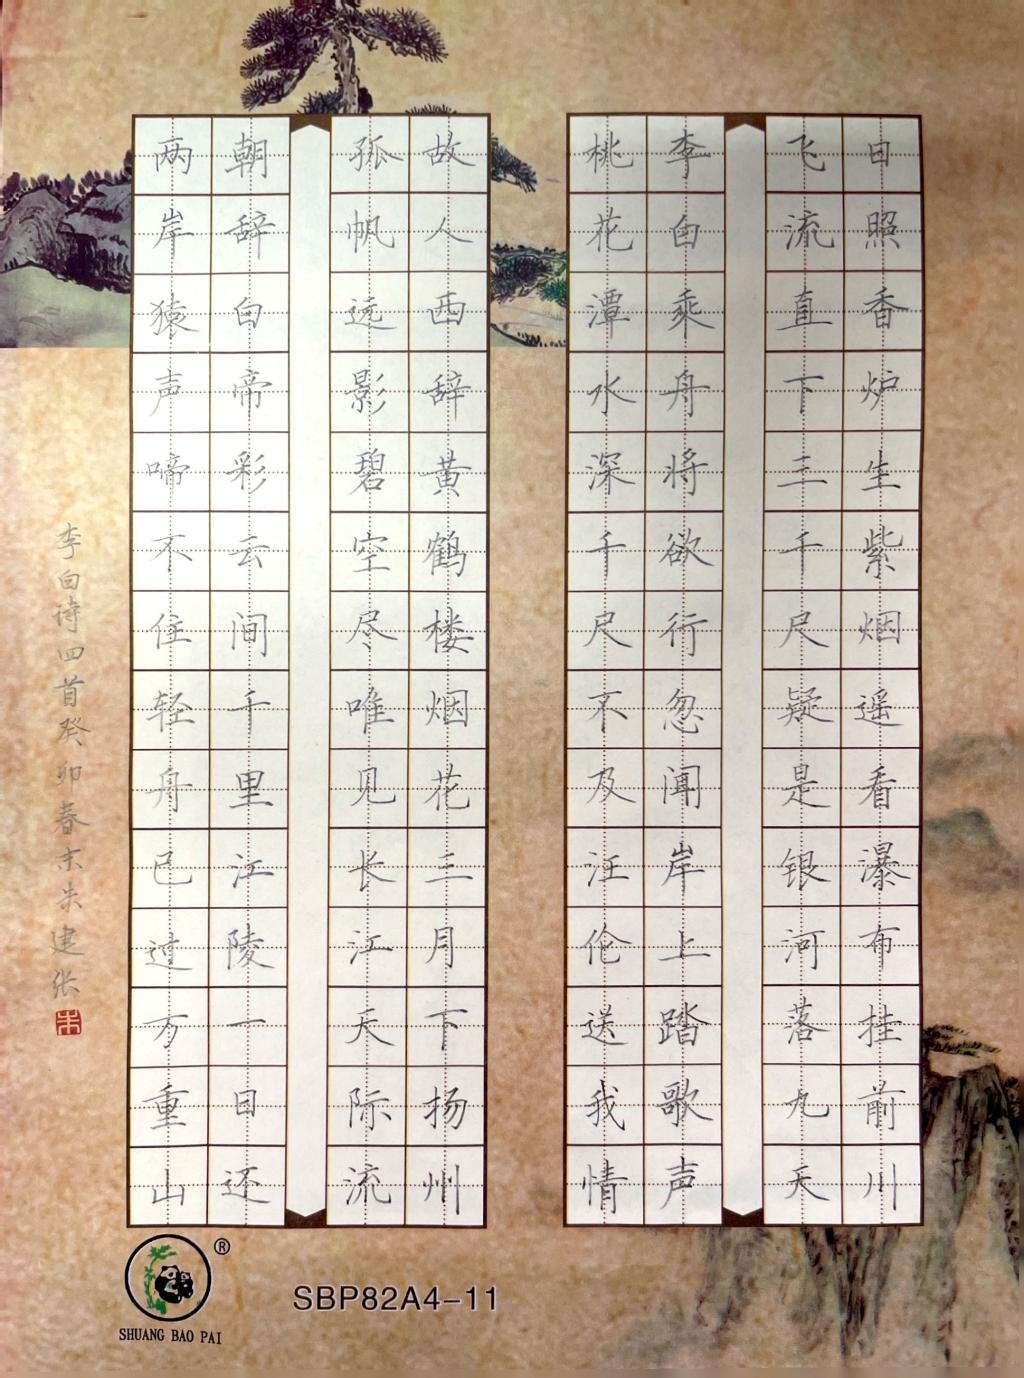 日照香炉生紫烟遥看瀑布挂前川
飞流直下三千尺疑是银河落九天
李白乘舟将欲行忽闻岸上踏歌声
桃花潭水深千尺不及汪伦送我情
故人西辞黄鹤楼烟花三月下扬州
孤帆远影碧空尽唯见长江天际流
朝辞白帝彩云间千里江陵一日还
两岸猿声啼不住轻舟已过万重山
李白诗四首癸卯春末朱建张
朱
®
SHUANG BAO PAI
SBP82A4-11